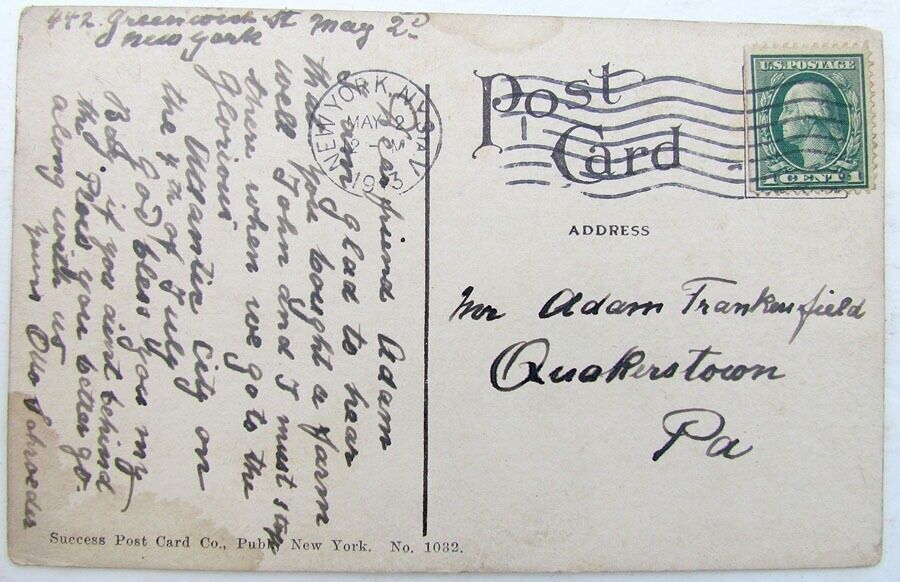 442 Greenwich St May 2d
New York
Dear friend Adam
I am glad to hear
that you bought a farm
well John and I must stop
there when we go to the
glorious
Atlantic City on
the 4th of July
God bless you my
Boy if you aint behind
the Plow you better go
along with us
Yours Otto Schroeder
NEW YORK, N.Y. STA V
MAY 2
2 - M
1913
Post
Card
U.S. POSTAGE
1 CENT 1
ADDRESS
Mr Adam Frankenfield
Quakerstown
Pa
Success Post Card Co., Publ. New York. No. 1032.